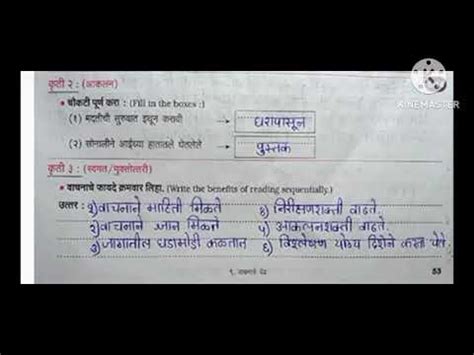 कृती २ : (आकलन)
• चौकटी पूर्ण करा : (Fill in the boxes :)
(१) मदतीची सुरुवात इथून करावी → घरापासून
(२) सोनालीने आईच्या हातातले घेतलेले → पुस्तक
KINEMASTER
कृती ३ : (स्वमत/मुक्तोत्तरी)
• वाचनाचे फायदे क्रमवार लिहा. (Write the benefits of reading sequentially.)
उत्तर : १) वाचनाने माहिती मिळते ४) निरीक्षणशक्ती वाढते.
२) वाचनाने ज्ञान मिळते ५) आकलनशक्ती वाढते.
३) जगातील घडामोडी कळतात ६) विश्लेषण योग्य दिशेने करता येते.
९. वाचनाचे वेड
53